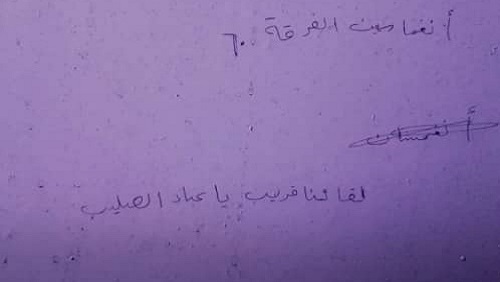 أنغماسين الفرقة ٦٠٠
أنغمسان
لقائنا قريب يا عباد الصليب